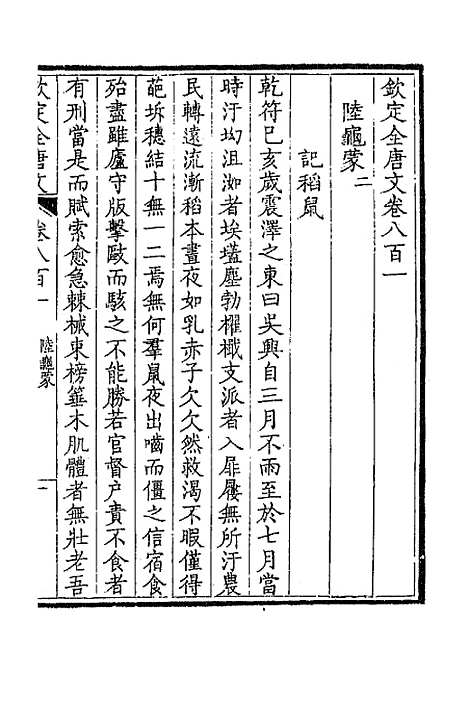 欽定全唐文卷八百一
陸龜蒙二
記稻鼠
乾符己亥歲震澤之東曰吳興自三月不雨至於七月當
時汙坳沮洳者埃壒塵勃櫂檝支派者入扉屨無所汙農
民轉遠流漸稻本晝夜如乳赤子欠欠然救渴不暇僅得
葩坼穗結十無一二焉無何羣鼠夜出嚙而僵之信宿食
殆盡雖廬守版擊毆而駭之不能勝若官督户責不食者
有刑當是而賦索愈急棘械束榜箠木肌體者無壯老吾
欽定全唐文
卷八百一
陸龜蒙
一